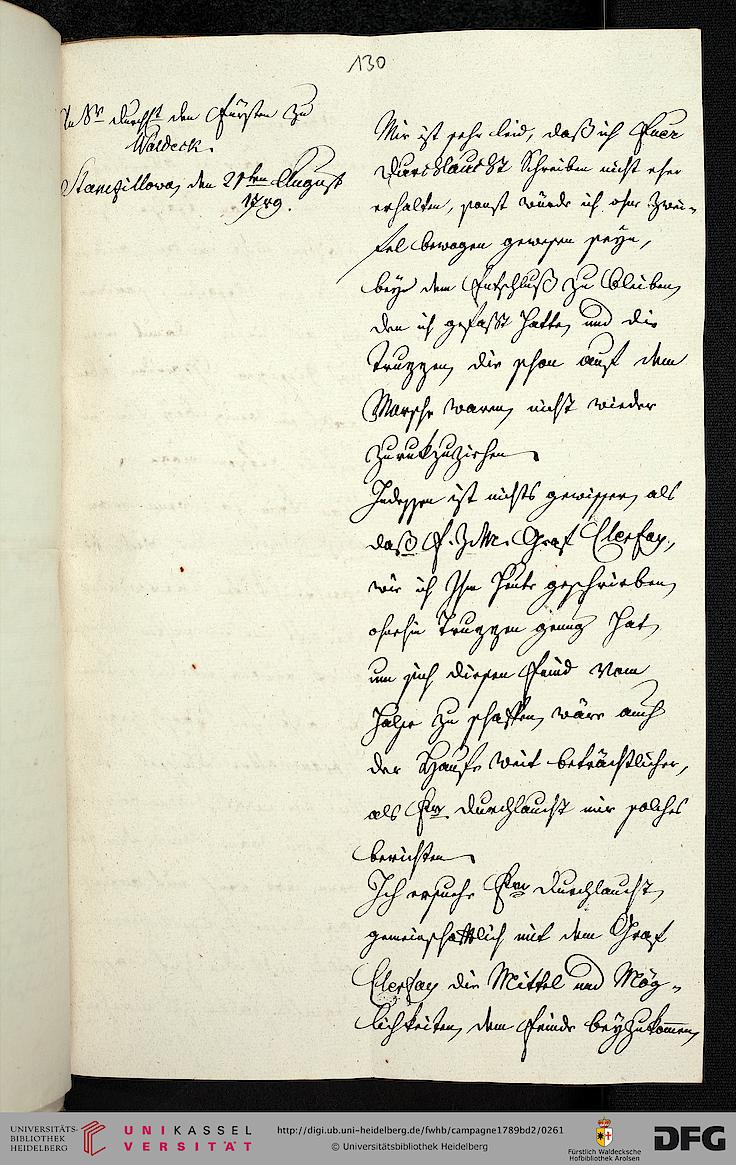 130
An Sr Durchlt den Fürsten zu
Waldeck.
den 21ten August
1789.
Mir ist sehr leid, daß ich Euer
Durchlaucht Schreiben nicht eher
erhalten, sonst würde ich ohne Zwei-
fel bewogen gewesen seyn,
beye dem Entschluß zu bleiben,
den ich gefaßt hatte, und die
Truppen, die schon auf dem
Marsche waren, nicht wieder
zurukzuziehen.
Indessen ist nichts gewisser, als
daß F. Z. M. Graf Clerfay,
wie ich Ihm heute geschrieben,
ohnehin Truppen genug hat,
um sich diesen Feind vom
Halse zu schaffen, wäre auch
der Haufe weit beträchtlicher,
als Eur Durchlaucht mir solches
berichten.
Ich ersuche Eur Durchlaucht,
gemeinschaftlich mit dem Graf
Clerfay die Mittel und Mög-
lichkeiten, dem Feinde beyzukommen,
UNIVERSITÄTS-
BIBLIOTHEK
HEIDELBERG
UNIKASSEL
VERSITÄT
http://digi.ub.uni-heidelberg.de/fwhb/campagne1789bd2/0261
© Universitätsbibliothek Heidelberg
Fürstlich Waldecksche
Hofbibliothek Arolsen
DFG